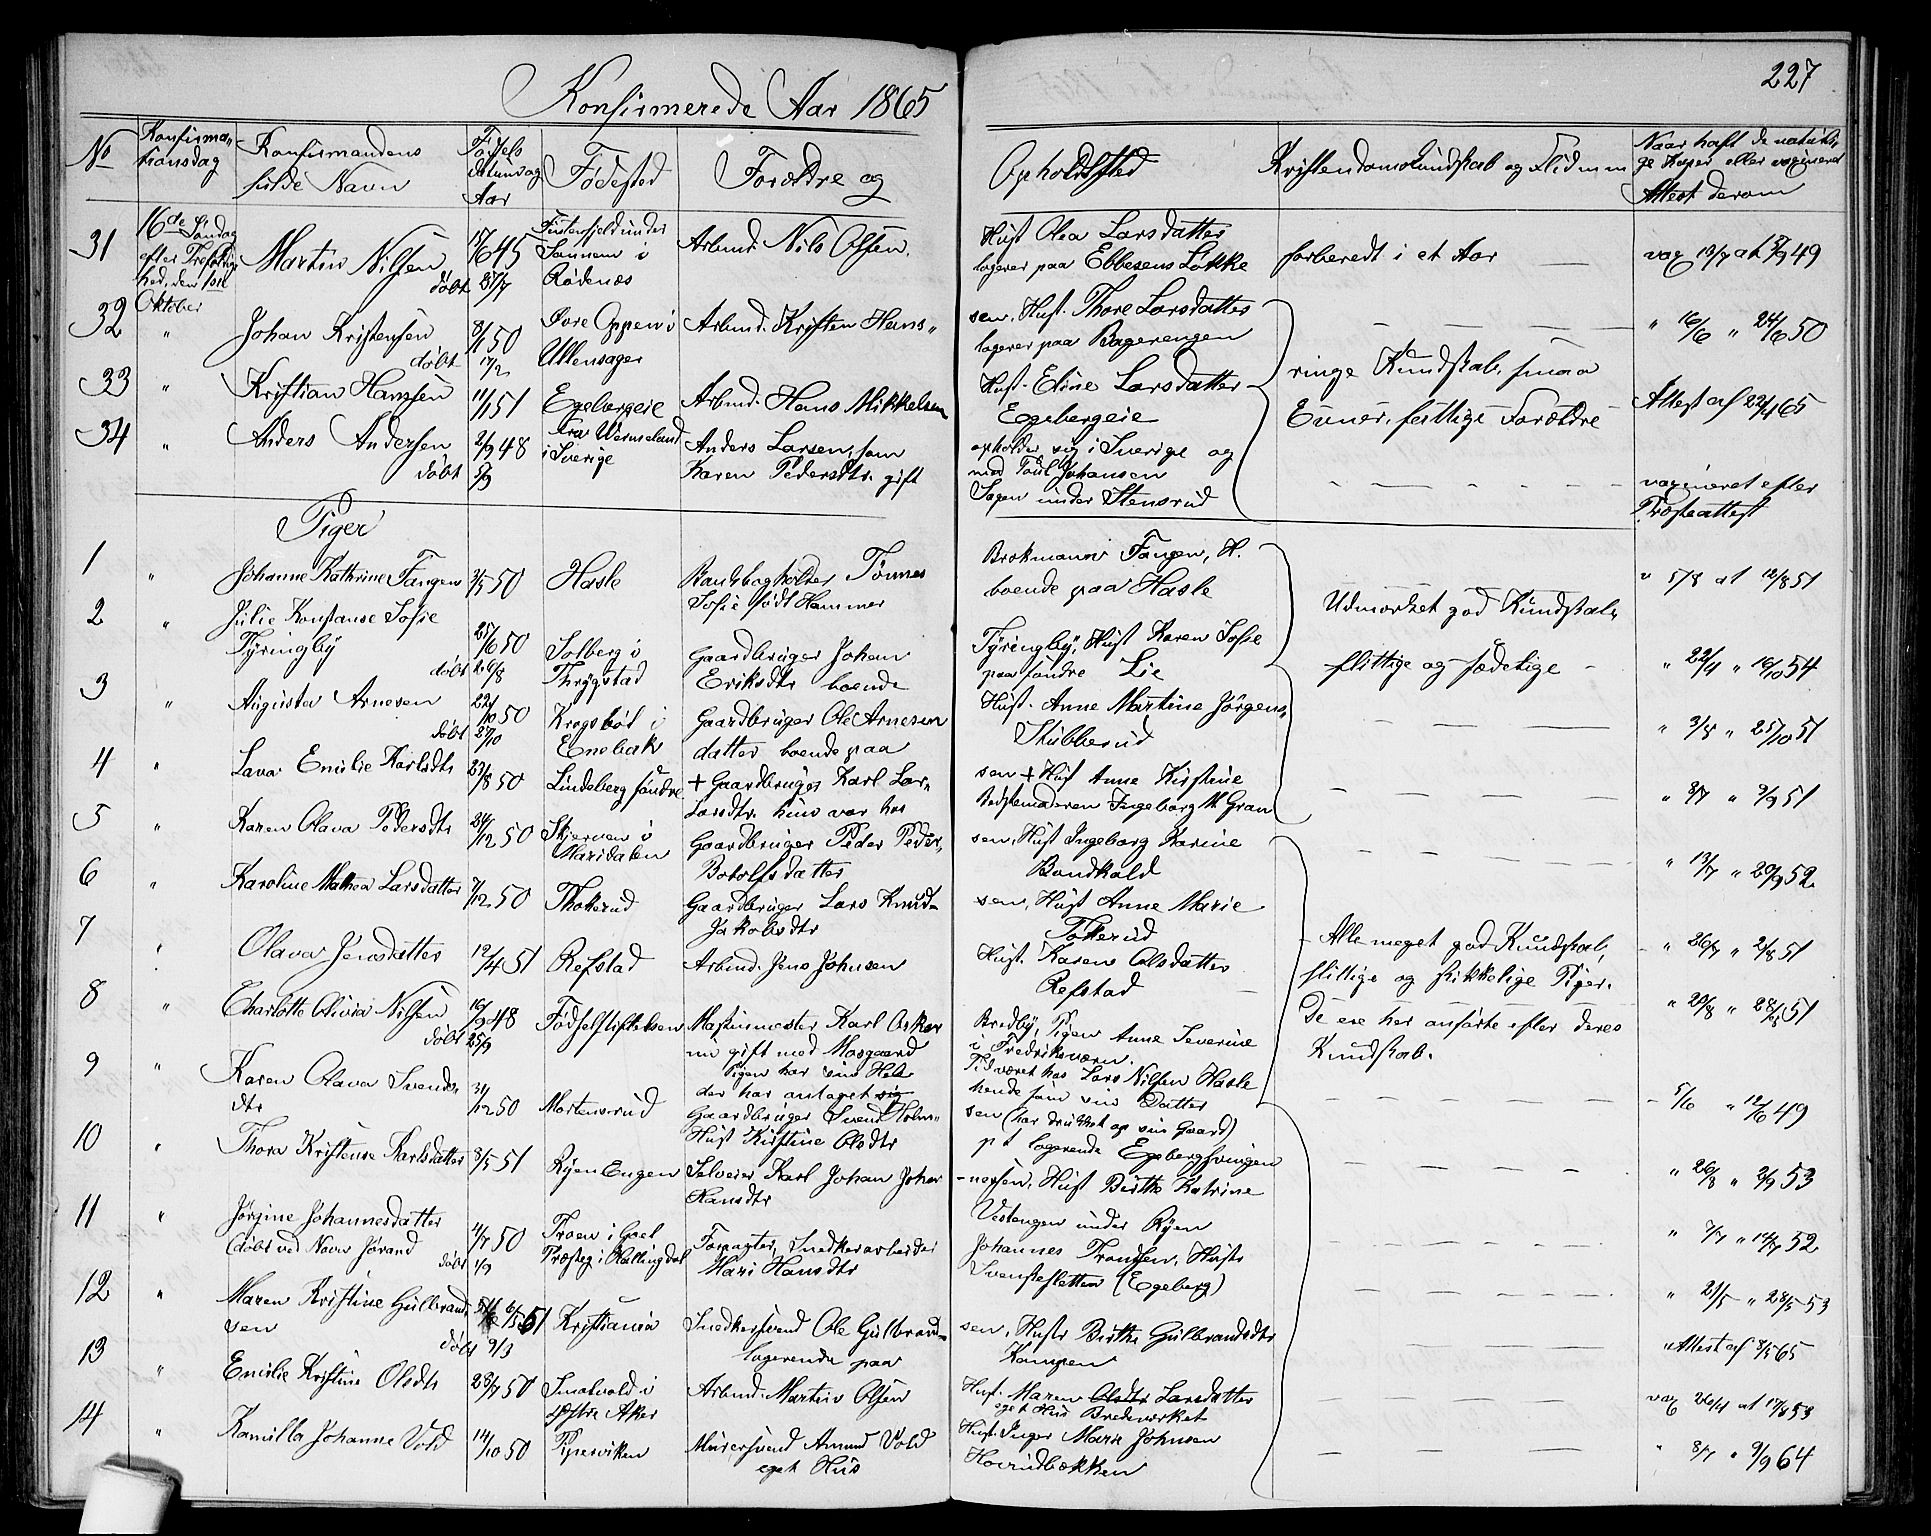 Konfirmerede Aar 1865
227
No
Konfirma-
tionsdag
Konfirmandens
fulde Navn
Fødsels
datum og
Aar
Fødested
Forældre og
Opholdssted
Kristendomskundskab og Flid m m
Naar haft de naturli-
ge Kopper eller vaxineret
Attest derom
31
16de Søndag
efter Trefoldig
hed, den 1ste
Oktober
Martin Nilsen
døbt
17/6 45
27/7
Finstersjeld under
Sannem i
Rødenæs
Arbmd. Nils Olsen.
Hust Olea Larsdatter
logerer paa Ebbesens Løkke
forberedt i et Aar
vax 13/7 at 49
32
"
Johan Kristensen
døbt
8/1 50
17/2
Oppen i
Ullensager
Arbmd. Kristen Hans-
sen, Hust. Thore Larsdatter
logerer paa Bagerengen
" 16/6 " 24/6 50
33
"
Kristian Hansen
11/1 51
Egebergeie
Arbmd. Hans Mikkelsen
Hust. Eline Larsdatter
Egebergeie
ringe Kundskab, smaa
Evner, fattige Forældre
Attest af 65
34
"
Anders Andersen
døbt
2/9 48
3/9
fra Wermeland
i Sverige
Anders Larsen, som
Karen Pedersdtr. gift
opholder sig i Sverige og
med Poul Johansen
Sagen under Stensrud
vaxineret efter
Præsteattest
Piger
1
"
Johanne Kathrine Fangen
3/5 50
Hasle
Bankbogholder Tønnes
Sofie født Hammer
Brokmann Fangen, H.
boende paa Hasle
Udmærket god Kundskab,
flittige og sædelige
v 5/8 at 12/8 51
2
"
Julie Konstanse Sofie
Fyringby
døbt
25/6 50
26/8
Solberg i
Thrygstad
Gaardbruger Johan
Eriksdtr boende
Fyringby, Hust Karen Sofie
paa søndre Lie
" 22/4 " 16/10 54
3
"
Augusta Arnesen
døbt
22/10 50
27/10
Krogsbøl i
Enebak
Gaardbruger Ole Arnesen
datter boende paa
Hust. Anne Martine Jørgens-
Stubberud
" 3/8 " 25/10 51
4
"
Lava Emilie Karlsdtr
23/8 50
Lindeberg søndre
+ Gaardbruger Karl Lar-
Larsdtr. hun var hos
sen + Hust Anne Kirstine
Bedstemoderen Ingeborg M Gran
" 8/7 " 9/9 51
5
"
Karen Olava Pedersdtr
24/12 50
Skjerven i
Maridalen
Gaardbruger Peder Peder-
Botolfsdatter
sen, Hust Ingeborg Karine
Bondkald
" 13/7 " 20/9 52
6
"
Karoline Mathea Larsdatter
7/12 50
Thokerud
Gaardbruger Lars Knud-
Jakobsdtr
sen, Hust Anne Marie
Tokerud
7
"
Olava Jensdatter
12/4 51
Refstad
Arbmd. Jens Johnsen
Hust. Karen Olsdatter
Refstad
Alle meget god Kundskab,
flittige og skikkelige Piger.
De ere her anførte efter deres
Kundskab.
" 26/7 " 2/8 51
8
"
Charlotte Olivia Nilsen
døbt
16/9 48
25/9
Fødselsstiftelsen
Maskinmester Karl Oskar
nu gift med Mosgaard
Pigen har sin Hele
der har antaget sig
Bredby, Pigen Anne Severine
i Fredriksværn.
Tid været hos Lars Nilsen Hasle
hende som sin Datter
" 20/8 " 51
9
"
Karen Olava Svends-
dtr
31/12 50
Mortensrud
Gaardbruger Svend Holm-
Hust Kirstine Olsdtr
sen (har drukket op sin Gaard)
p t logerende Egebergsvingen
5/10 " 49
10
"
Thora Kristense Karlsdatter
8/5 51
Ryen Engen
Selveier Karl Johan Johan
Hansdtr
-nesen, Hust Birthe Katrine
Vestengen under Ryen
" 26/8 " 3/9 53
11
"
Jørgine Johannesdatter
(døbt ved Navn Jørand
døbt
4/7 50
1/9
Troen i Goel
Præsteg i Hallingdal
Forpagter, Snedkerarbeider
Mari Hansdtr
Johannes Trondsen, Hustr
Svenskesletten (Egeberg)
" 7/7 " 14/7 52
12
"
Maren Kristine Gulbrand-
sen
døbt
6/5 51
9/3
Kristiania
Snedkersvend Ole Gulbrand-
logerende paa
sen, Hustr Birthe Gulbrandsdtr
Kampen
" 21/5 " 28/5 53
13
"
Emilie Kristine Olsdtr
28/7 50
Smalvold i
østre Aker
Arbmd. Martin Olsen
Hust. Maren Olsdtr Larsdatter
eget Hus Bredeværket
" Attest af 8/5 65
14
"
Kamilla Johanne Vold
14/10 50
Pipervíken
Murersvend Amund Vold
eget Hus
Hust. Inger Marie Johnsen
Hovindbækken
vax 26/4 at 53
" 8/7 " 9/9 64